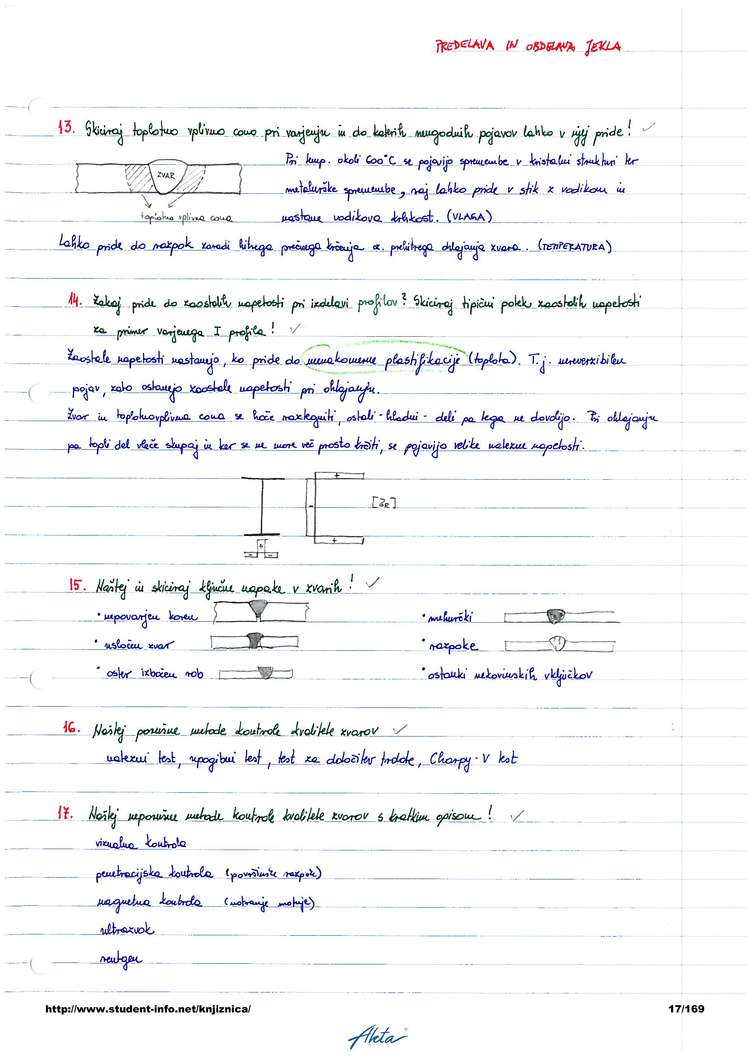 PREDELAVA IN OBDELAVA JEKLA
13. Skiciraj toplotno vplivno cono pri varjenju in do katerih neugodnih pojavov lahko v njej pride! ✓
Pri temp. okoli 600°C se pojavijo spremembe v kristalni strukturi ter
ZVAR
metalurške spremembe, saj lahko pride v stik z vodikom in
toplotno vplivna cona
nastane vodikova krhkost. (VLAGA)
Lahko pride do razpok zaradi hitrega prečnega krčenja oz. prehitrega ohlajanja zvara. (TEMPERATURA)
14. Zakaj pride do zaostalih napetosti pri izdelavi profilov? Skiciraj tipični potek zaostalih napetosti
za primer varjenega I profila! ✓
Zaostale napetosti nastanejo, ko pride do neenakomerne plastifikacije (toplota). T.j. nereverzibilen
pojav, zato ostanejo zaostale napetosti pri ohlajanju.
Zvar in toplotnovplivna cona se hoče raztegniti, ostali - hladni - deli pa tega ne dovolijo. Pri ohlajanju
pa topli del vleče skupaj in ker se ne more več prosto krčiti, se pojavijo velike natezne napetosti.
+
-
+
- + -
15. Naštej in skiciraj ključne napake v zvarih! ✓
• nepovarjen koren
• mehurčki
• usločen zvar
• razpoke
• oster izbočen rob
• ostanki nekovinskih vključkov
16. Naštej porušne metode kontrole kvalitete zvarov ✓
natezni test, upogibni test, test za določitev trdote, Charpy-V test
17. Naštej neporušne metode kontrole kvalitete zvarov s kratkim opisom! ✓
vizualna kontrola
penetracijska kontrola (površinske razpoke)
magnetna kontrola (notranje motnje)
ultrazvok
rentgen
http://www.student-info.net/knjiznica/
17/169
Aleta